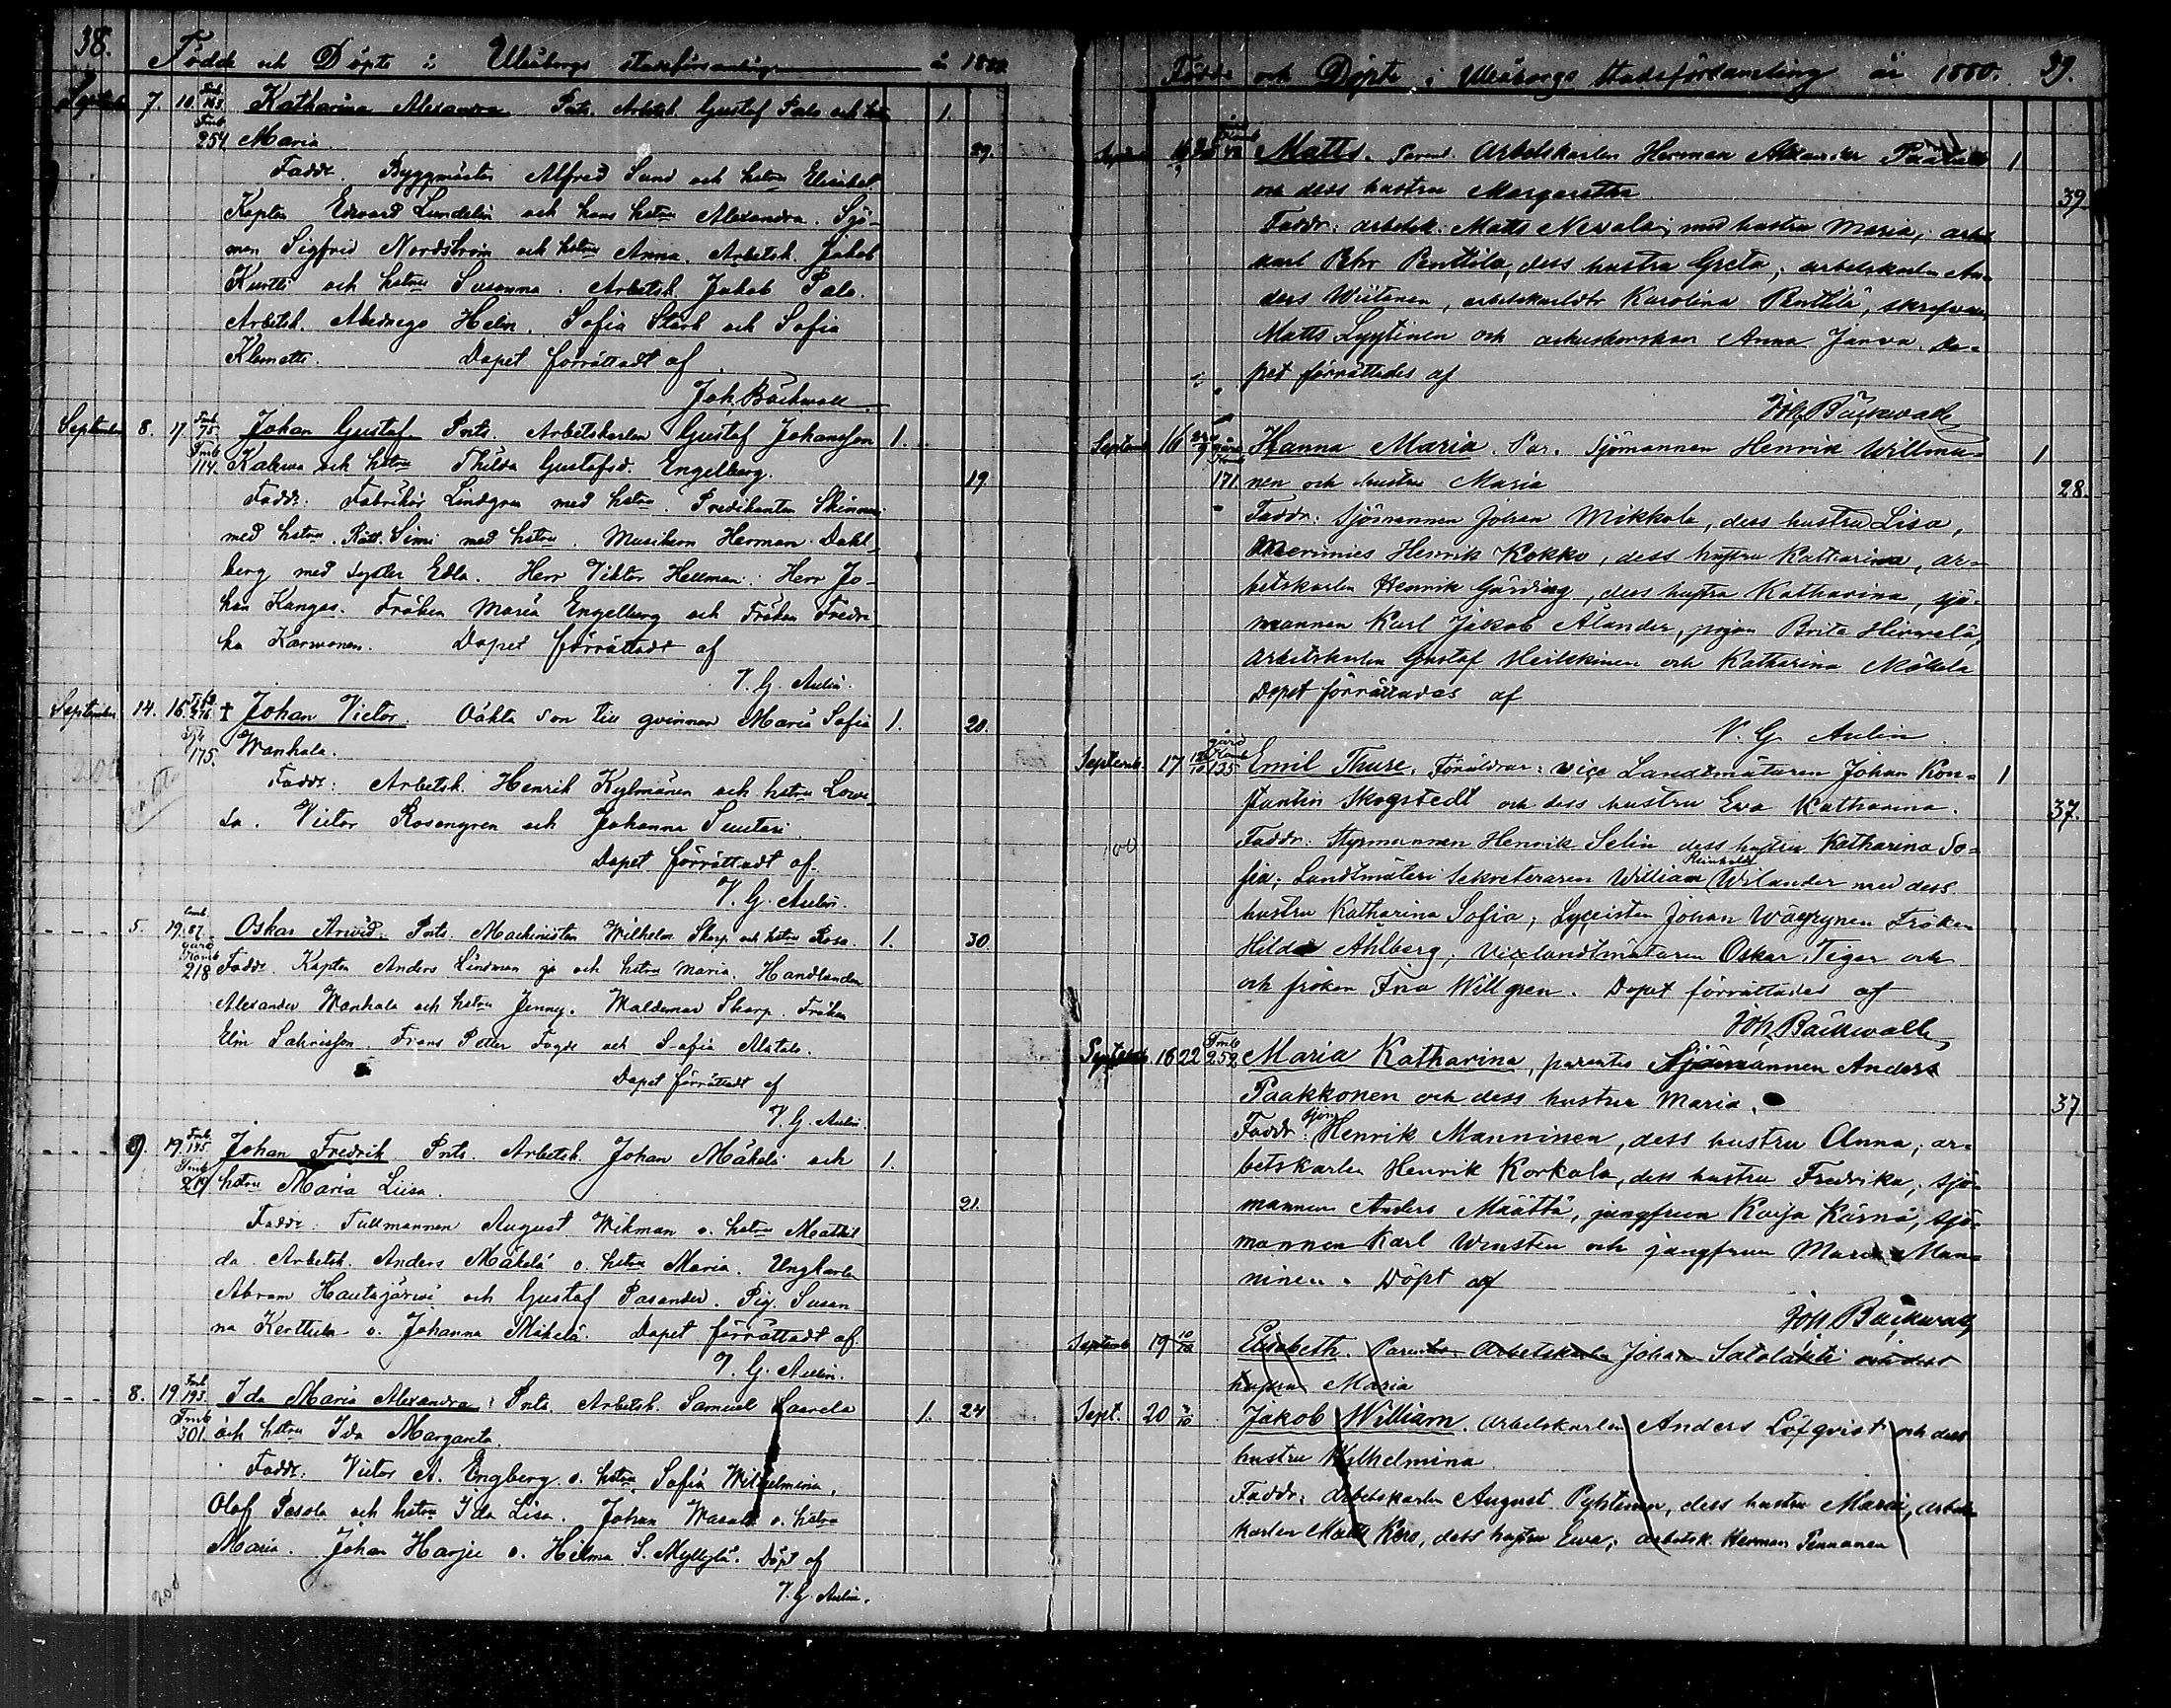 38.
Födde och Döpte i Uleåborgs stadsförsamling år 1880
7. 10. Katharina Alexandra Prnts. Arbetsk. Gustaf Palo och hstru 1.
254 Maria. 29.
Faddr. Byggmästar Alfred Sund och hstru Elisabet
Kapten Edvard Lundelin och hans hstru Alexandra. Sjö-
man Sigfrid Nordström och hstru Anna. Arbetsk. Jakob
Kurtti och hstru Susanna. Arbetsk. Jakob Palo.
Arbetsk. Abednego Helin. Sofia Stark och Sofia
Klemetti. Dopet förrättadt af
Joh. Bäckwall
September 8. 17. Johan Gustaf. Prnts. Arbetskarlen Gustaf Johansson 1.
114. Kaleva och hstru Thilda Gustafsd. Engelberg. 19.
Faddr: Fabrikör Lindgren med hstru. Predikanten Skinnari
med hstru. Rått. Simi med hstru. Musikern Herman Dahl-
berg med syster Edla. Herr Viktor Hellman. Herr Jo-
han Kangas. Fröken Maria Engelberg och Fröken Fredri-
ka Karvonen. Dopet förrättadt af
V. G. Aulin.
September 14. 16. 276. † Johan Victor. Oäkta son till qvinnan Maria Sofia 1. 20.
175. Wanhala.
Faddr: Arbetsk. Henrik Kylmänen och hstru Lowi-
sa. Victor Rosengren och Johanna Suutari.
Dopet förrättadt af.
V. G. Aulin.
- - - 5. 19. 87. Oskar Arwid. Prnts. Machinisten Wilhelm Skarp och hstru Rosa. 1. 30
218 Faddr. Kapten Anders Lindman jr och hstru Maria. Handlanden
Alexander Wanhala och hstru Jenny. Waldemar Skarp. Fröken
Elin Sahrisson. Frans Petter Fogde och Sofia Matala.
Dopet förrättadt af
V. G. Aulin.
- - - 9. 19. 145. Johan Fredrik Prnts. Arbetsk. Johan Mäkelä och 1.
219 hstru Maria Liisa. 21.
Faddr: Tullmannen August Wikman o. hstru Mathil-
da. Arbetsk. Anders Mäkelä o. hstru Maria. Ungkarlen
Abram Hautajärvi och Gustaf Pasander. Pig. Susan-
na Kerttula o. Johanna Mäkelä. Dopet förrättadt af.
V. G. Aulin.
- - - 8. 19. 193. Ida Maria Alexandra: Prnts. Arbetsk. Samuel Saarela 1. 24
301. och hstru Ida Margareta.
Faddr: Victor A. Engberg o. hstru Sofia Wilhelmina.
Olof Pesola och hstru Ida Lisa. Johan Wasala o. hstru
Maria. Johan Harju o. Hilma S. Myllylä. Döpt af
V. G. Aulin.
Födde och Döpte i Uleåborgs stadsförsamling år 1880. 39.
16 Matts. Parent. Arbetskarlen Herman Alexander 1
och dess hustru Margaretha 39
Faddr: arbetsk. Matts Nevala, med hustru Maria, arbets-
karl Petr Penttilä, dess hustru Greta; arbetskarlen An-
ders Wiitanen, arbetskarldtr Karolina Penttilä, skrefvaren
Matts Lyytinen och Anna Jarva. Do-
pet förrättades af
Joh. Bäckwall
Septemb 16 Hanna Maria. Par. Sjömannen Henrik Willmu- 1
171 nen och hustru Maria 28.
Faddr: Sjömannen Johan Mikkola, dess hustru Lisa,
Merimies Henrik Kokko, dess hustru Katharina, ar-
betskarlen Henrik Gärding, dess hustru Katharina, sjö-
mannen Karl Jakob Ålander, pigan Brita Hinnelä,
arbetskarlen Gustaf Heiskinen och Katharina Mäkelä
Dopet förrättades af
V. G. Aulin
Septemb. 17 135 Emil Thure. Föräldrar: vice Landtmätaren Johan Kon- 1
stantin Skogstedt och dess hustru Eva Katharina. 37.
Faddr: Styrmannen Henrik Selin dess hustru Katharina So-
fia, Landtmäteri Sekreteraren William Reinhold Wilander med dess
hustru Katharina Sofia, Lyceisten Johan Wäyrynen Fröken
Hilda Ahlberg, Vicelandtmätaren Oskar Tiger och
och fröken Ina Willgren. Dopet förrättades af
Joh. Bäckwall
18 22 252 Maria Katharina, parentes Sjömannen Anders
Paakkonen och dess hustru Maria. 37
Faddr: Sjöm Henrik Manninen, dess hustru Anna, ar-
betskarlen Henrik Korkala, dess hustru Fredrika, sjö-
mannen Anders Määttä, jungfrun Kaija Kärnä, sjö-
mannen Karl Winsten och jungfrun Maria Man-
ninen. Döpt af
Joh. Bäckwall
Septemb 19 10/10 Elisabeth. Parentes Arbetskarlen Johan Satolakti och dess
hustru Maria
Sept. 20 3/10 Jakob William. Arbetskarlen Anders Löfqvist och dess
hustru Wilhelmina
Faddr: Arbetskarlen August Pyhtinen, dess hustru Maria, arbets-
karlen Matts Kero, dess hustru Ewa, arbetsk. Herman Pennanen